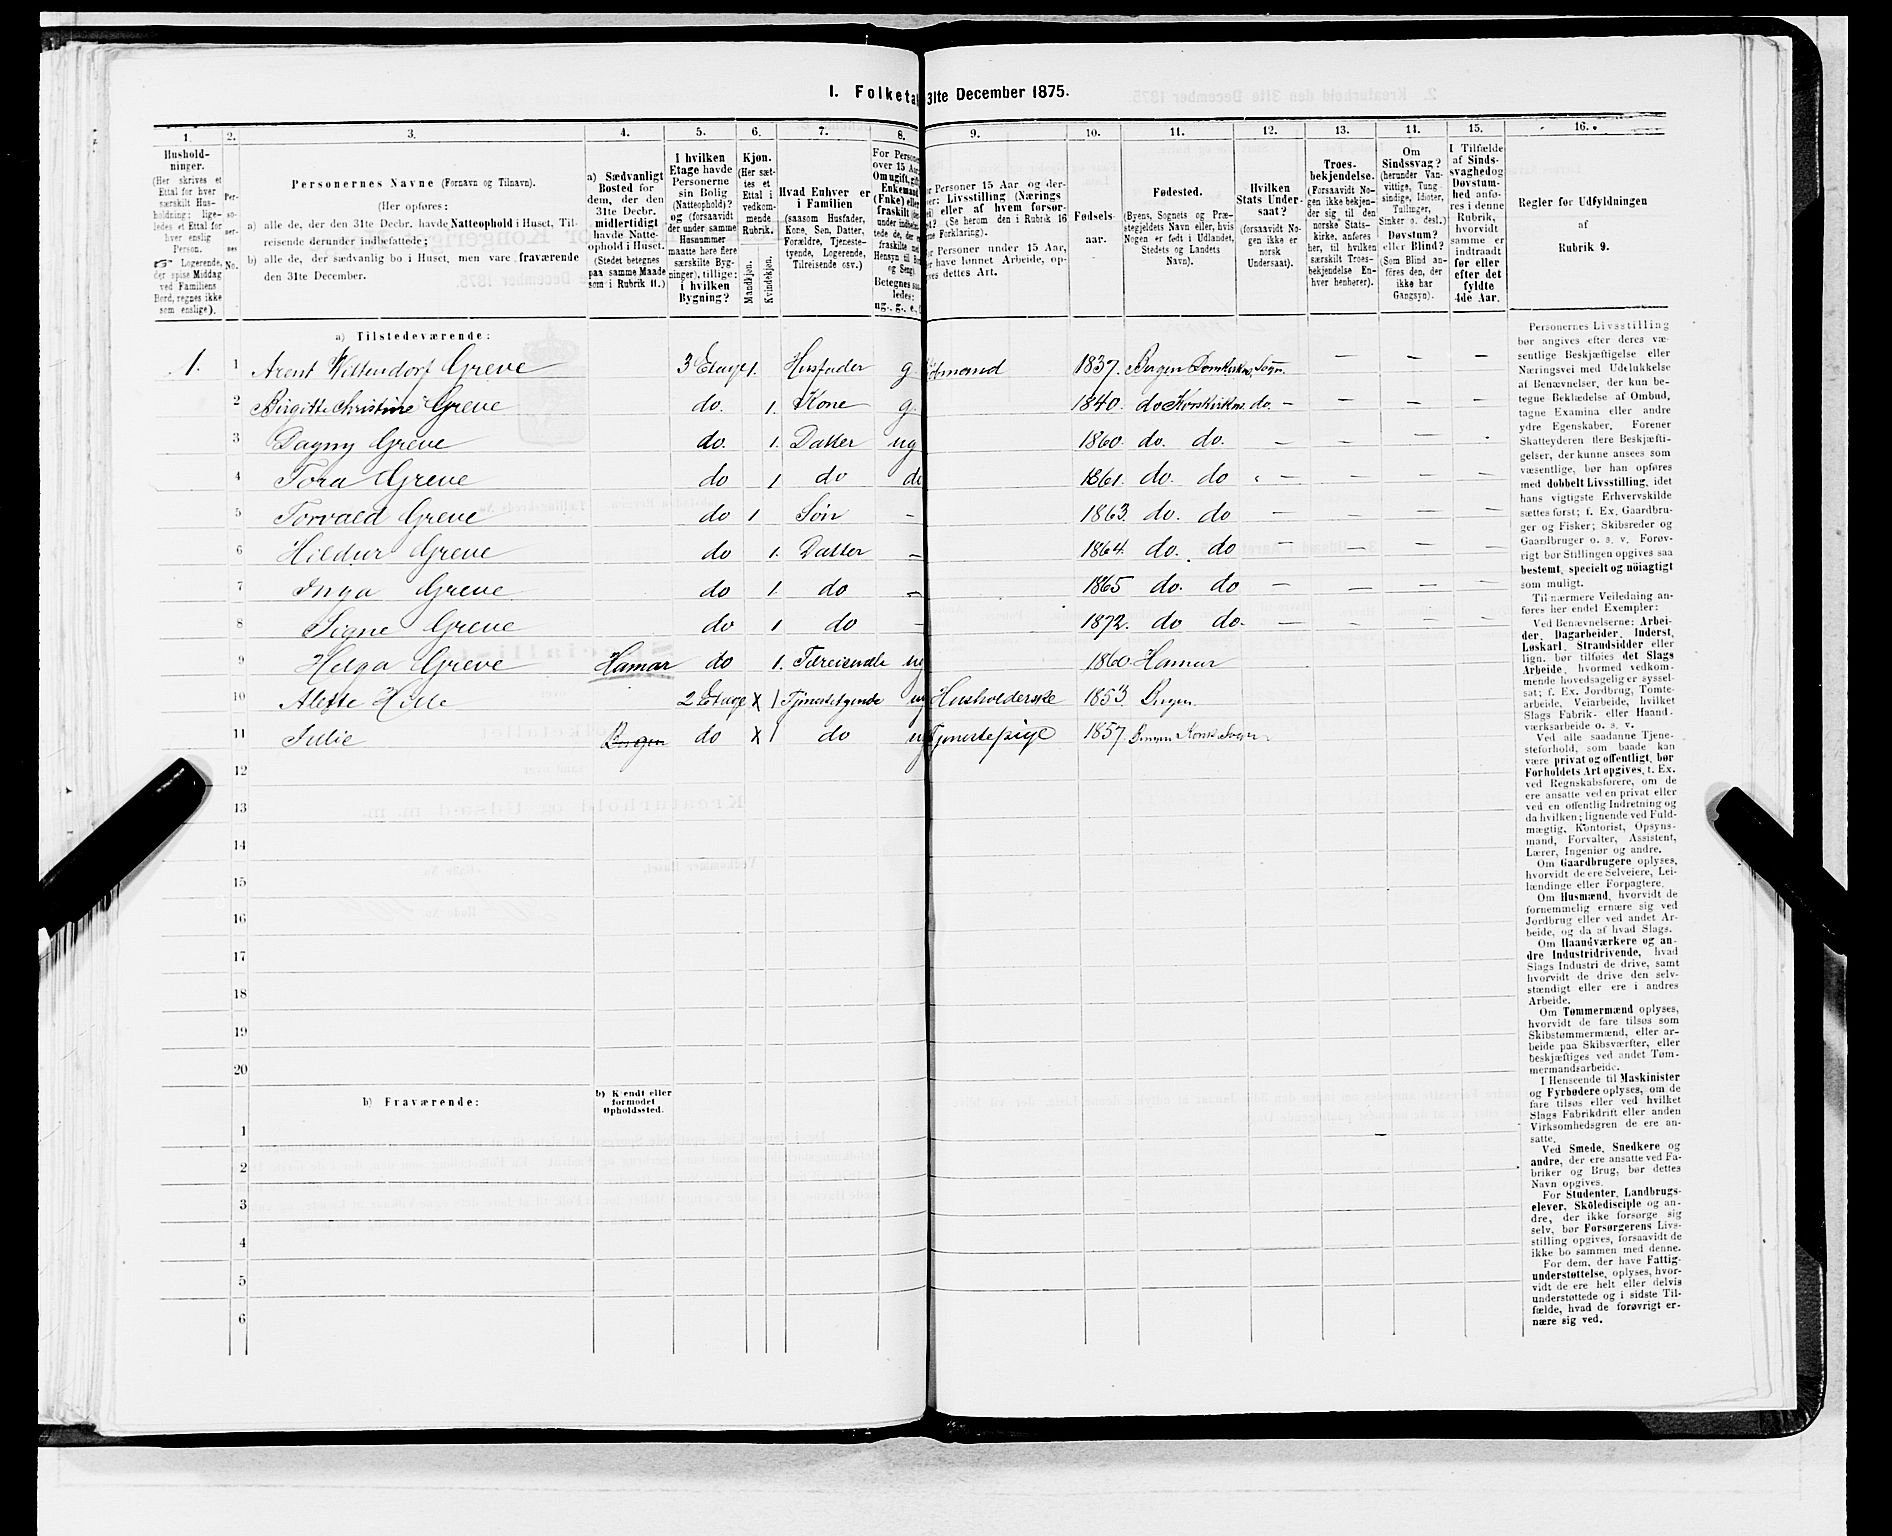 1. Folketa 31te December 1875.
1. 2. 3. 4. 5. 6. 7. 8. 9. 10. 11. 12. 13. 14. 15. 16.
Hushold-
ninger.
(Her skrives et
Ettal for hver
særskilt Hus-
holdning; lige-
ledes et Ettal for
hver enslig
Person.
☞ Logerende,
der spise Middag
ved Familiens
Bord, regnes ikke
som enslige).
Per-
so-
ner-
nes
No.
Personernes Navne (Fornavn og Tilnavn).
(Her opføres:
a) alle de, der den 31te Decbr. havde Natteophold i Huset, Til-
reisende derunder indbefattede;
b) alle de, der sædvanlig bo i Huset, men vare fraværende
den 31te December.
a) Sædvanligt
Bosted for
dem, der den
31te Decbr.
midlertidigt
havde Natte-
ophold i Huset.
(Stedet betegnes
paa samme Maade
som i Rubrik 11.)
I hvilken
Etage havde
Personerne
sin Bolig
(Natteophold)?
og (forsaavidt
der under samme
Husnummer
maatte høre flere
særskilte Byg-
ninger), tillige:
i hvilken
Bygning?
Kjøn.
(Her sæt-
tes et
Ettal i
vedkom-
mende
Rubrik.
Mandkjøn.
Kvindekjøn.
Hvad Enhver er
i Familien
(saasom Husfader,
Kone, Søn, Datter,
Forældre, Tjeneste-
tyende, Logerende,
Tilreisende osv.)
For Persone
over 15 Aar
Om ugift, gift
Enkemand
(Fnke) elle
fraskilt
under indbe
tede de, der
fraskilte
Hensyn til Bo
og Seng).
Betegnes saa
ledes:
ug., g., e.,
Personer 15 Aar og der-
Livsstilling (Nærings
eller af hvem forsør-
(Se herom den i Rubrik 16
Forklaring).
Personer under 15 Aar,
have lønnet Arbeide, op-
dettes Art.
Fødsels-
aar.
Fødested.
(Byens, Sognets og Præ-
stegjeldets Navn eller, hvis
Nogen er født i Udlandet,
Stedets og Landets
Navn).
Hvilken
Stats Under-
saat?
(forsaavidt No-
gen ikke er
norsk
Undersaat).
Troes-
bekjendelse.
(Forsaavidt No-
gen ikke bekjen-
der sig til den
norske Stats-
kirke, anføres
her, til hvilken
særskilt Troes-
bekjendelse En-
hver henhører).
Om
Sindssvag?
(herunder Van-
vittige, Tung-
sindige, Idioter,
Tullinger,
Sinker o. desl.)
Døvstum?
eller Blind?
(Som Blind an-
føres den, der
ikke har
Gangsyn).
I Tilfælde
af Sinds-
svaghed og
Døvstum-
hed anfø-
res i denne
Rubrik,
hvorvidt
samme er
indtraadt
før eller
efter det
fyldte
4de Aar.
Regler for Udfyldningen
af
Rubrik 9.
a) Tilstedeværende:
1. 1 Arent Wittendorf Greve 3 Etage 1. Husfader g. 1837. Bergen Domkirkes Sogn. — — —
2 Birgitte Christine Greve do. 1. Kone g. 1840. do Korskirkens do. — — — —
3 Dagny Greve do. 1. Datter ug 1860. do. do. — — —
4 Tora Greve do 1 do do 1861. do. do — — — —
5 Torvald Greve do 1 Søn — 1863. do. do — — — —
6 Hildur Greve do 1. Datter — 1864. do. do — — — —
7 Inga Greve do 1. do — 1865 do. do — — — —
8 Signe Greve do 1 do — 1872. do do. — — — —
9 Helga Greve Hamar do 1. Tilreisende ug 1860. Hamar — — —
10 Alette Hille 2 Etage x 1 Tjenestetyende ug Husholderske 1853 Bergen — — —
11 Julie Bergen do x 1 do ug Tjenestepige 1857. Bergen Kors Sogn — — —
12
13
14
15
16
17
18
19
20
b) Fraværende:
b) Kjendt eller
formodet
Opholdssted.
1
2
3
4
5
6
Personernes Livsstilling
bør angives efter deres væ-
sentlige Beskjæftigelse eller
Næringsvei med Udelukkelse
af Benævnelser, der kun be-
tegne Beklædelse af Ombud,
tagne Examina eller andre
ydre Egenskaber. Forener
Skatteyderen flere Beskjæfti-
gelser, der kunne ansees som
væsentlige, bør han opføres
med dobbelt Livsstilling, idet
hans vigtigste Erhvervskilde
sættes først; f. Ex. Gaardbru-
ger og Fisker; Skibsreder og
Gaardbruger o. s. v. Forøv-
rigt bør Stillingen opgives saa
bestemt, specielt og nöiagtigt
som muligt.
Til nærmere Veiledning an-
føres her endel Exempler:
Ved Benævnelserne: Arbei-
der, Dagarbeider, Inderst,
Løskarl, Strandsidder eller
lign. bør tilføies det Slags
Arbeide, hvormed vedkom-
mende hovedsagelig er syssel-
sat; f. Ex. Jordbrug, Tomte-
arbeide, Veiarbeide, hvilket
Slags Fabrik- eller Haand-
værksarbeide o. s. v.
Ved alle saadanne Tjene-
steforhold, som baade kan
være privat og offentligt, bør
Forholdets Art opgives, t. Ex.
ved Regnskabsførere, om de
ere ansatte ved en privat eller
ved en offentlig Indretning og
da hvilken; lignende ved Fuld-
mægtig, Kontorist, Opsyns-
mand, Forvalter, Assistent,
Lærer, Ingeniør og andre.
Om Gaardbrugere oplyses,
hvorvidt de ere Selveiere, Lei-
lændinge eller Forpagtere.
Om Husmænd, hvorvidt de
fornemmelig ernære sig ved
Jordbrug eller ved andet Ar-
beide, og da af hvad Slags.
Om Haandværkere og an-
dre Industridrivende, hvad
Slags Industri de drive, samt
hvorvidt de drive den selv-
stændigt eller ere i andres
Arbeide.
Om Tømmermænd oplyses,
hvorvidt de fare tilsøs som
Skibstømmermænd, eller ar-
beide paa Skibsværfter, eller
beskjæftiges ved andet Tøm-
mermandsarbeide.
I Henseende til Maskinister
og Fyrbødere oplyses, om de
fare tilsøs eller ved hvilket
Slags Fabrikdrift eller anden
Virksomhedsgren de ere an-
satte.
Ved Smede, Snedkere og
andre, der ere ansatte ved Fa-
briker og Brug, bør dettes
Navn opgives.
For Studenter, Landbrugs-
elever, Skoledisciple og an-
dre, der ikke forsørge sig
selv, bør Forsørgerens Livs-
stilling opgives, forsaavidt de
ikke bo sammen med denne.
For dem, der have Fattig-
understøttelse, oplyses, hvor-
vidt de ere helt eller delvis
understøttede og i sidste Til-
fælde, hvad de forøvrigt er-
nære sig ved.